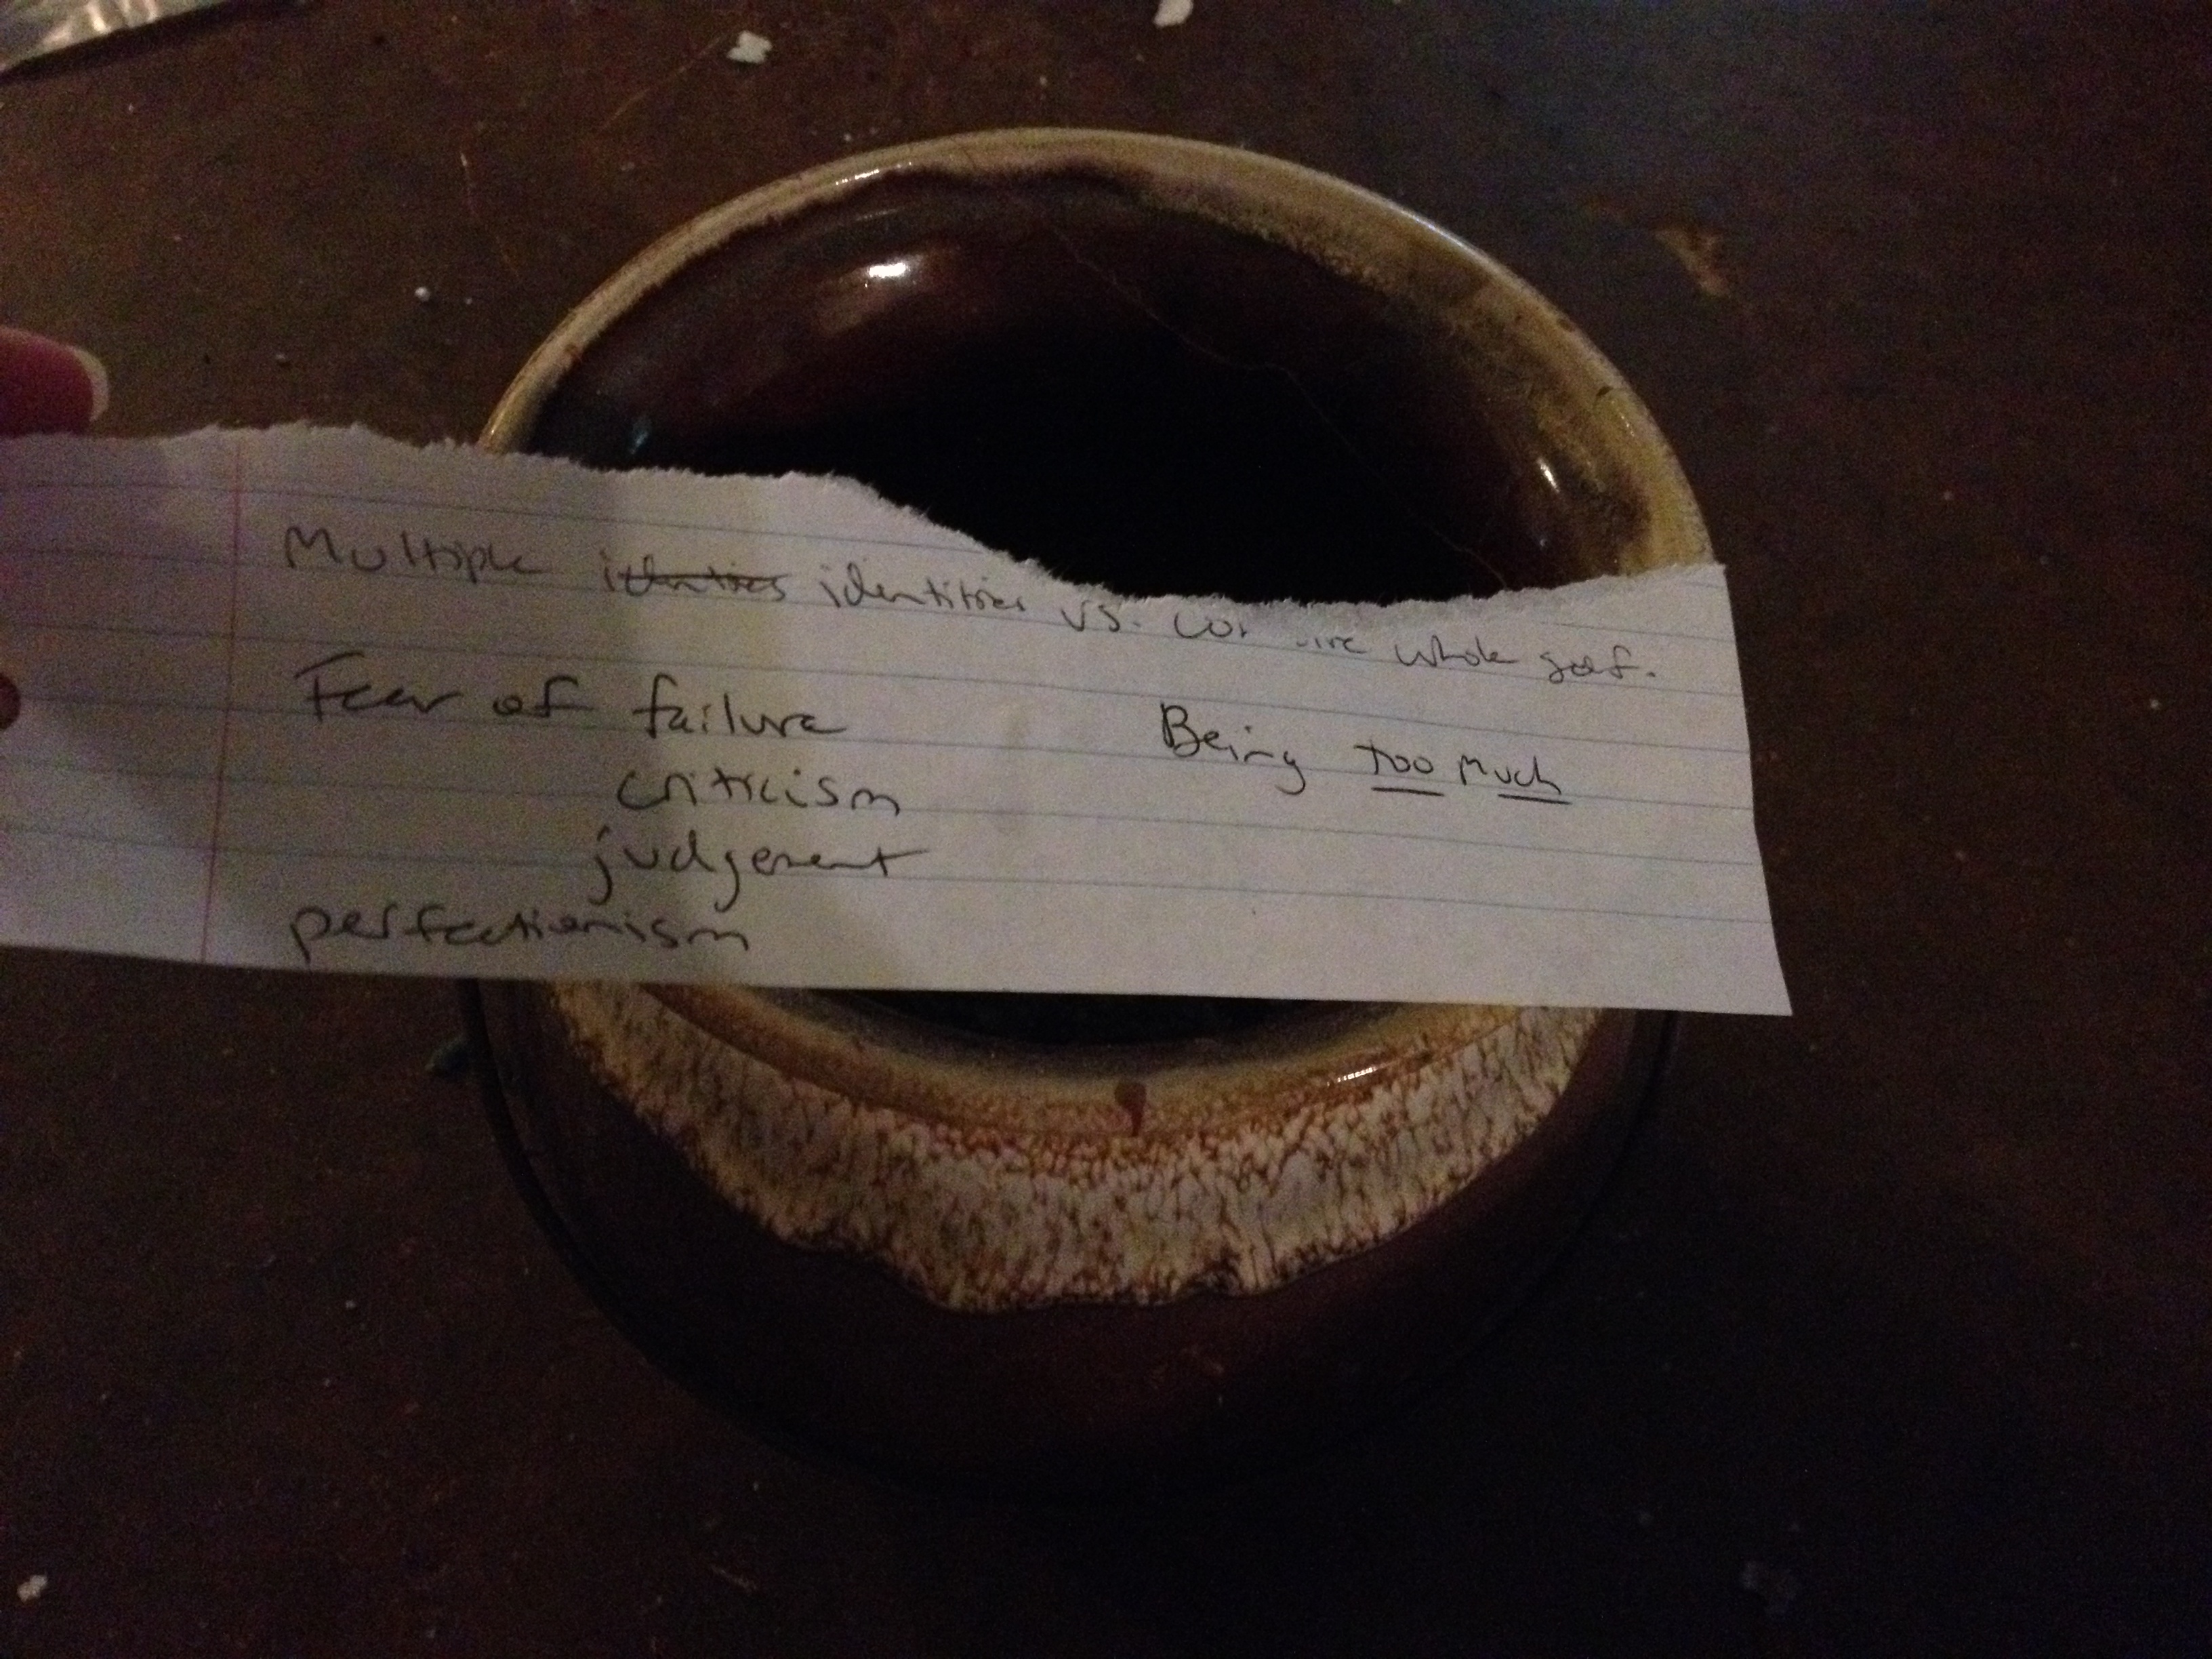 Multiple identities identities vs. whole self.
Fear of failure
Being too much
criticism
judgement
perfectionism